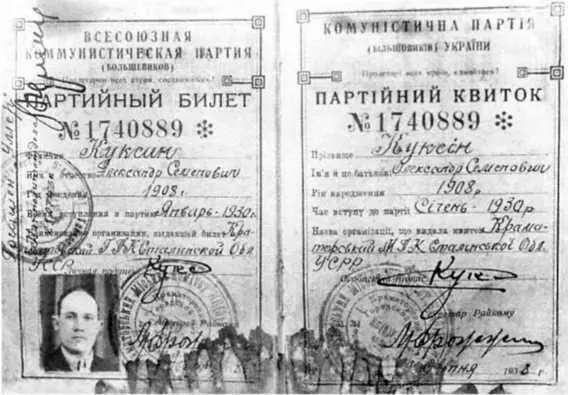 ВСЕСОЮЗНАЯ
КОММУНИСТИЧЕСКАЯ ПАРТИЯ
(БОЛЬШЕВИКОВ)
Пролетарии всех стран, соединяйтесь!
ПАРТИЙНЫЙ БИЛЕТ
№ 1740889 ✻
Фамилия Куксин
Имя и отчество Александр Семенович
рождения 1908 г
вступления в партию Январь-1930г.
организации, выдавшей билет Кра-
ГПК Сталинской Обл
УСРР
Кукс
КОМУНІСТИЧНА ПАРТІЯ
(БІЛЬШОВИКІВ) УКРАЇНИ
Пролетарі всіх країн, єднайтеся!
ПАРТІЙНИЙ КВИТОК
№ 1740889 ✻
Прізвище Куксін
Ім'я й по батькові Александр Семенович
Рік народження 1908р
Час вступу до партії Січень-1930р
Назва організації, що видала квиток Крама-
торський М.П.К Сталінської Обл.
УСРР
Особистий підпис Кукс
Секретар Райкому
193 р.